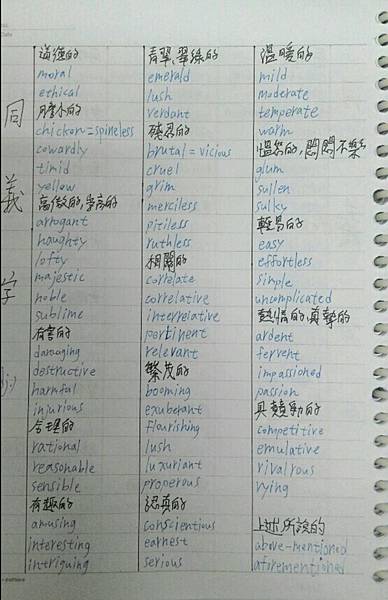 同
義
字
道德的
moral
ethical
膽小的
chicken=spineless
cowardly
timid
yellow
高傲的,崇高的
arrogant
haughty
lofty
majestic
noble
sublime
有害的
damaging
destructive
harmful
injurious
合理的
rational
reasonable
sensible
有趣的
amusing
interesting
intriguing
青翠,翠綠的
emerald
lush
verdant
殘忍的
brutal = vicious
cruel
grim
merciless
pitiless
ruthless
相關的
correlate
correlative
interrelative
pertinent
relevant
繁茂的
booming
exuberant
flourishing
lush
luxuriant
properous
認真的
conscientious
earnest
serious
溫暖的
mild
moderate
temperate
warm
慍怒的,悶悶不樂
glum
sullen
sulky
輕易的
easy
effortless
simple
uncomplicated
熱情的,真摯的
ardent
fervent
impassioned
passion
具競動的
competitive
emulative
rivalrous
vying
上述所說的
above-mentioned
aforementioned